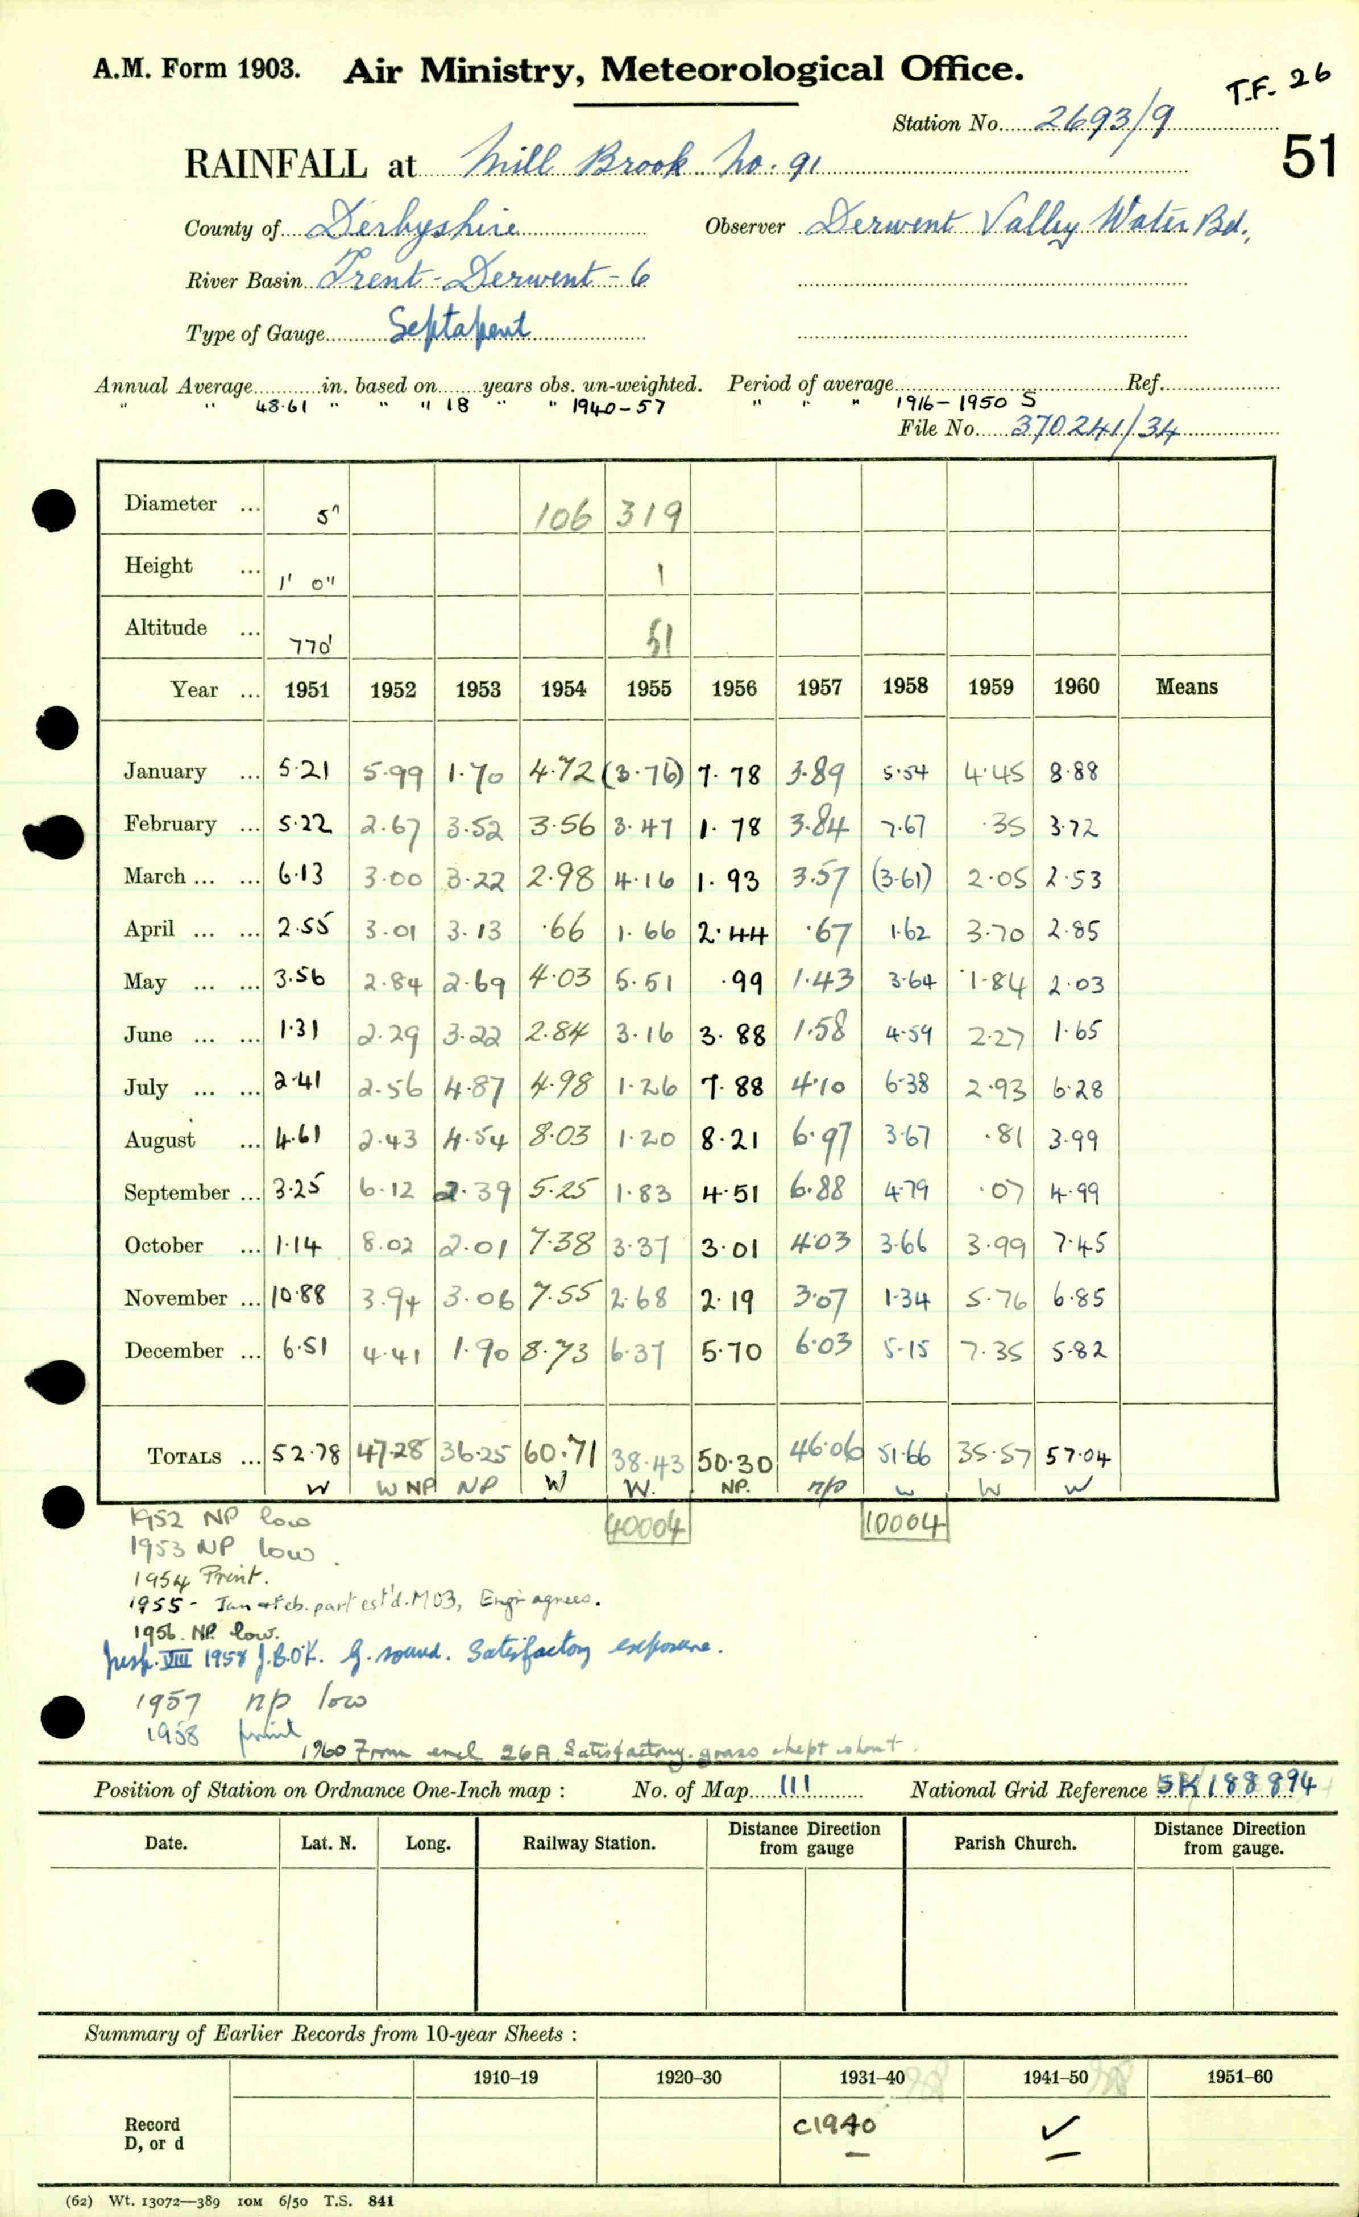 A.M. Form 1903. Air Ministry, Meteorological Office.
T.F. 26
Station No. 2693/9
51
RAINFALL at Mill Brook No. 91
County of Derbyshire Observer Derwent Valley Water Bd.
River Basin Trent-Derwent-6
Type of Gauge Septapent
Annual Average in. based on years obs. un-weighted. Period of average Ref.
" " 48.61 " " " 18 " " 1940-57 " " " 1916-1950 S
File No. 370241/34
Diameter ... 5" 106 319
Height ... 1' 0" 1
Altitude ... 770' 51
Year ... 1951 1952 1953 1954 1955 1956 1957 1958 1959 1960 Means
January ... 5.21 5.99 1.70 4.72 (3.76) 7.78 3.89 5.54 4.45 8.88
February ... 5.22 2.67 3.52 3.56 3.47 1.78 3.84 7.67 .35 3.72
March ... ... 6.13 3.00 3.22 2.98 4.16 1.93 3.57 (3.61) 2.05 2.53
April ... ... 2.55 3.01 3.13 .66 1.66 2.44 .67 1.62 3.70 2.85
May ... ... 3.56 2.84 2.69 4.03 5.51 .99 1.43 3.64 1.84 2.03
June ... ... 1.31 2.29 3.22 2.84 3.16 3.88 1.58 4.59 2.27 1.65
July ... ... 2.41 2.56 4.87 4.98 1.26 7.88 4.10 6.38 2.93 6.28
August ... 4.61 2.43 4.54 8.03 1.20 8.21 6.97 3.67 .81 3.99
September ... 3.25 6.12 2.39 5.25 1.83 4.51 6.88 4.79 .07 4.99
October ... 1.14 8.02 2.01 7.38 3.37 3.01 4.03 3.66 3.99 7.45
November ... 10.88 3.94 3.06 7.55 2.68 2.19 3.07 1.34 5.76 6.85
December ... 6.51 4.41 1.90 8.73 6.37 5.70 6.03 5.15 7.35 5.82
TOTALS ... 52.78 47.28 36.25 60.71 38.43 50.30 46.06 51.66 35.57 57.04
W W NP NP W W. NP. np w W W
1952 NP low 40004 10004
1953 NP low.
1954 Print.
1955 - Jan & Feb. part est'd. M03, Engr agrees.
1956. NP. low.
Insp. VIII 1958 J.B.O'K. G. sound. Satisfactory exposure.
1957 np low
1958 print
1960 From encl 26A Satisfactory. grass kept short.
Position of Station on Ordnance One-Inch map : No. of Map 111 National Grid Reference SK 188894
Date. Lat. N. Long. Railway Station. Distance from Direction gauge Parish Church. Distance from Direction gauge.
Summary of Earlier Records from 10-year Sheets :
1910–19 1920–30 1931–40 1941–50 1951–60
Record D, or d C1940 ✓
(62) Wt. 13072—389 10M 6/50 T.S. 841